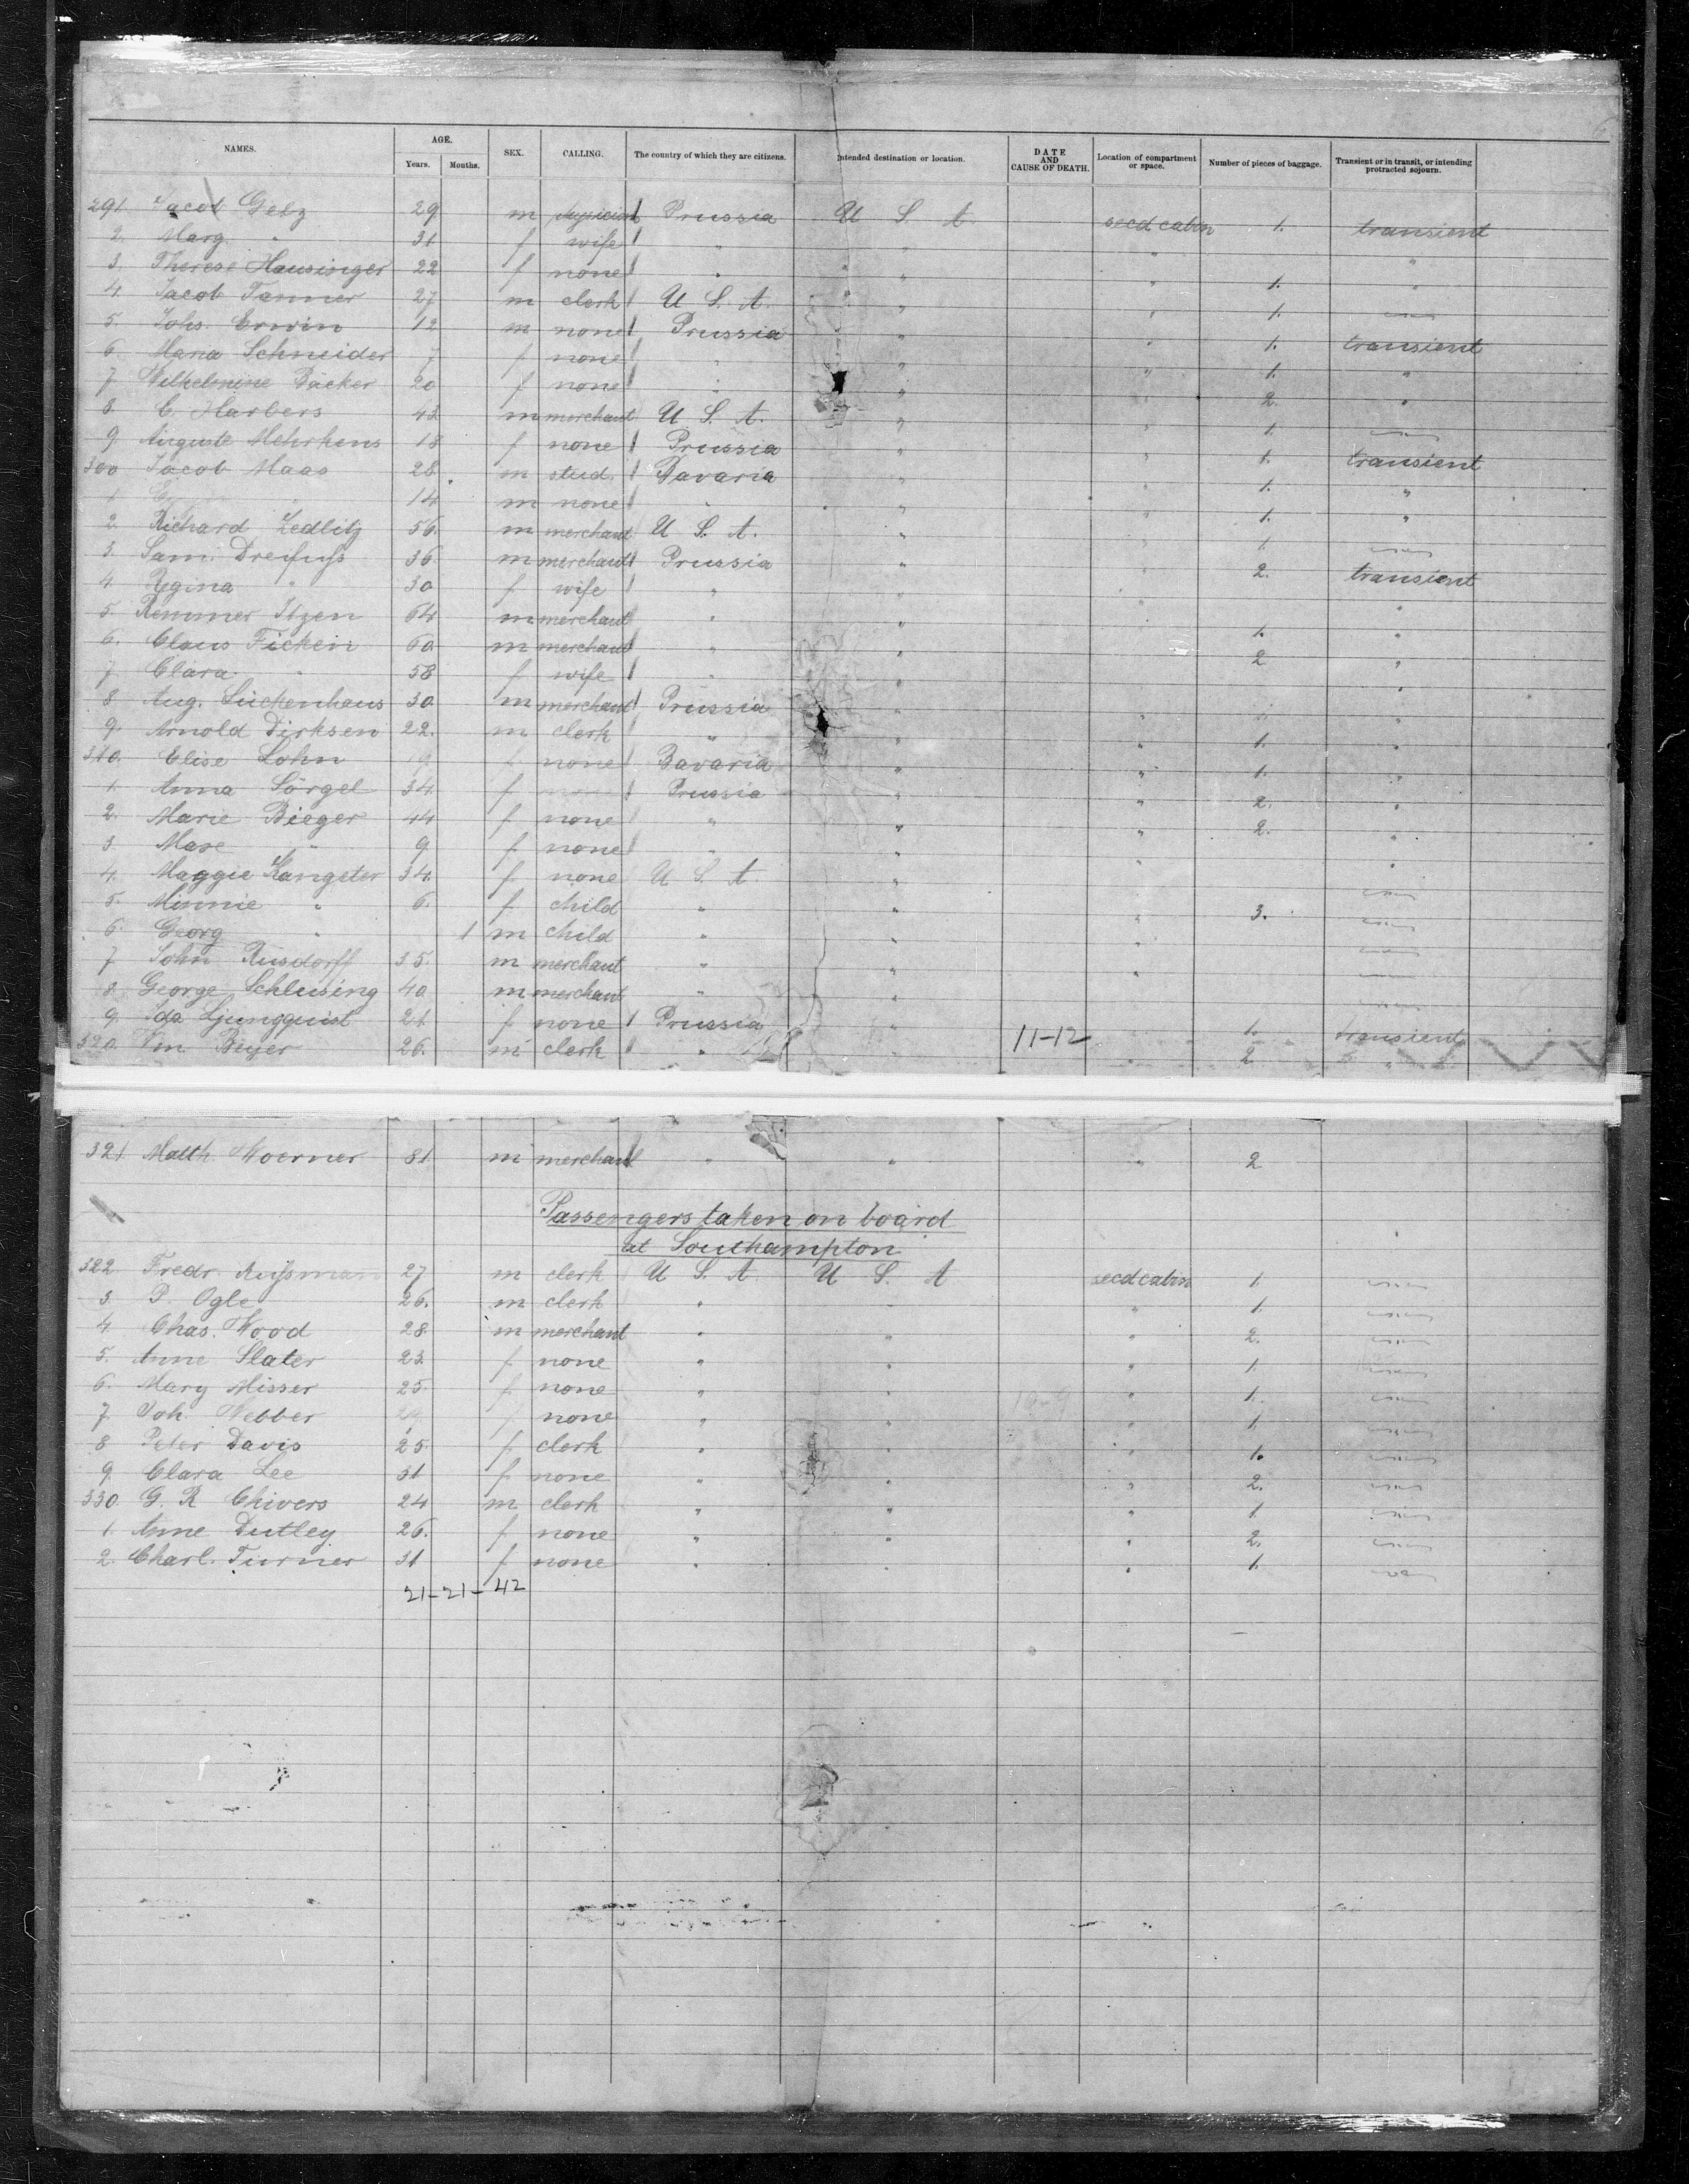 NAMES. AGE. Years. Months. SEX. CALLING. The country of which they are citizens. Intended destination or location. DATE AND CAUSE OF DEATH. Location of compartment or space. Number of pieces of baggage. Transient or in transit, or intending protracted sojourn.
291. Jacob Gelz 29 m physician Prussia U S A. secd cabin 1. transient
2. Marg. " 31 f wife " " " "
3. Therese Hausinger 22 f none " " " 1. "
4. Jacob Tanner 27 m clerk U. S. A. " " 1.
5. Johs. Erwin 12 m none Prussia " " 1. transient
6. Maria Schneider 7 f none " " " 1. "
7. Wilhelmine Bäcker 20 f none " " " 2. "
8. C. Harbers 42 m merchant U. S. A. " " 1.
9. Auguste Mehrkens 18 f none Prussia " " 1. transient
300 Jacob Maas 28. m stud. Bavaria " " 1. "
1. 14 m none " " 1. "
2. Richard Zedlitz 56. m merchant U. S. A. " " 1.
3. Sam. Dreyfuss 36. m merchant Prussia " " 2. transient
4. Regina " 30 f wife " " " "
5. Remmer Itzen 64 m merchant " " 1. "
6. Claus Ficken 60 m merchant " " 2 "
7. Clara " 58 f wife " " "
8 Aug. Lückenhaus 30. m merchant Prussia " " "
9. Arnold Dirksen 22. m clerk " " " 1. "
310. Elise Lohn f none Bavaria " " 1. "
1. Anna Sörgel 34. f Prussia " " 2. "
2. Marie Bieger 44 f none " " " 2. "
3. " 9. f none " " " "
4. Maggie Kangeter 34. f none U S. A. "
5. Minnie " 6. f child " " " 3.
6. Georg " 1 m child " " "
7. John Rüsdorff 35. m merchant " " "
8. George Schleusing 40 m merchant " "
9. Ida Ljungquist 21. f none Prussia " 1. transient
320. Wm Beyer 26. m clerk " " 11-12 " 2 "
321. Matth. Woerner 31. m merchant " " " 2
Passengers taken on board
at Southampton
322 Fredr. 27 m clerk U S. A. U S. A secd cabin 1.
3 P. Ogle 26. m clerk " " 1.
4 Chas. Wood 28. m merchant " " " 2.
5. Anne Slater 23. f none " " " 1.
6. Mary Misser 25. f none " " " 1.
7. Joh. Webber f none " " " 1.
8 Peter Davis 25. f clerk " " " 1.
9. Clara Lee 31 f none " " " 2.
330. G. R Chivers 24 m clerk " " " 1.
1. Anne Dutley 26. f none " " " 2.
2. Charl. Turner 31 f none " " " 1.
21-21-42